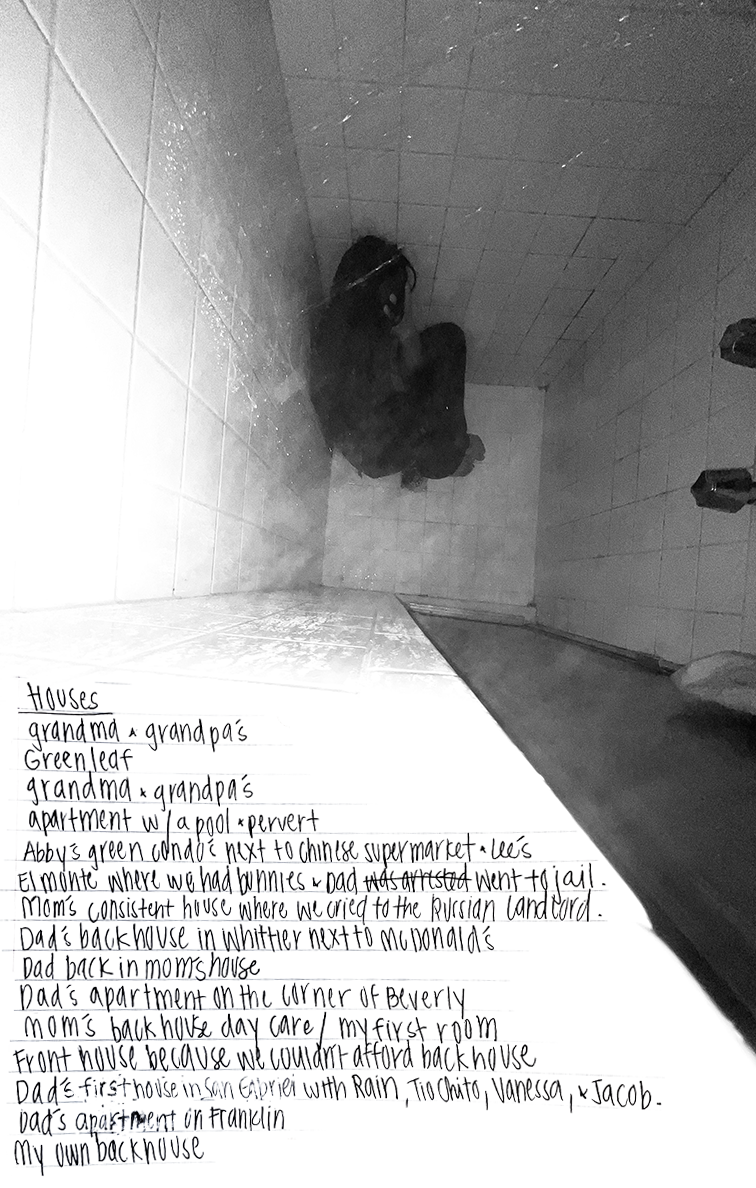 Houses
grandma & grandpa's
Greenleaf
grandma & grandpa's
apartment w/ a pool & pervert
Abby's green condo's next to chinese supermarket & Lee's
El monte where we had bunnies & Dad was arrested went to jail.
Mom's consistent house where we cried to the Russian landlord.
Dad's backhouse in whittier next to McDonald's
Dad back in mom's house
Dad's apartment on the corner of Beverly
mom's backhouse day care / my first room
Front house because we couldn't afford backhouse
Dad's first house in San Gabriel with Rain, Tio Chito, Vanessa, & Jacob.
Dad's apartment on Franklin
My own backhouse